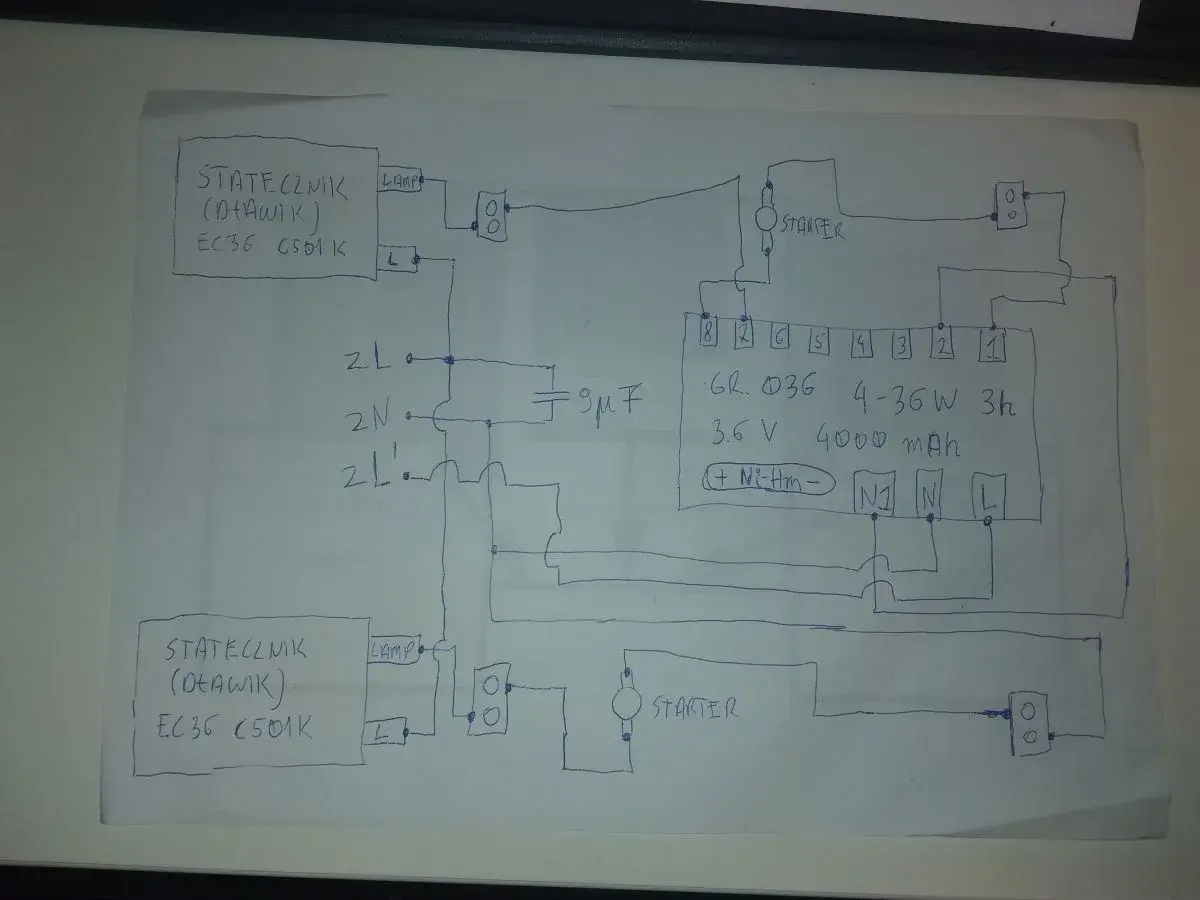 STATECZNIK
(DŁAWIK)
EC36 C501K
LAMP
L
STARTER
ZL
ZN
ZL'
9µF
8 7 6 5 4 3 2 1
GR. 036 4-36W 3h
3.6 V 4000 mAh
+ Ni-Hm -
N1 N L
STATECZNIK
(DŁAWIK)
EC36 C501K
LAMP
L
STARTER